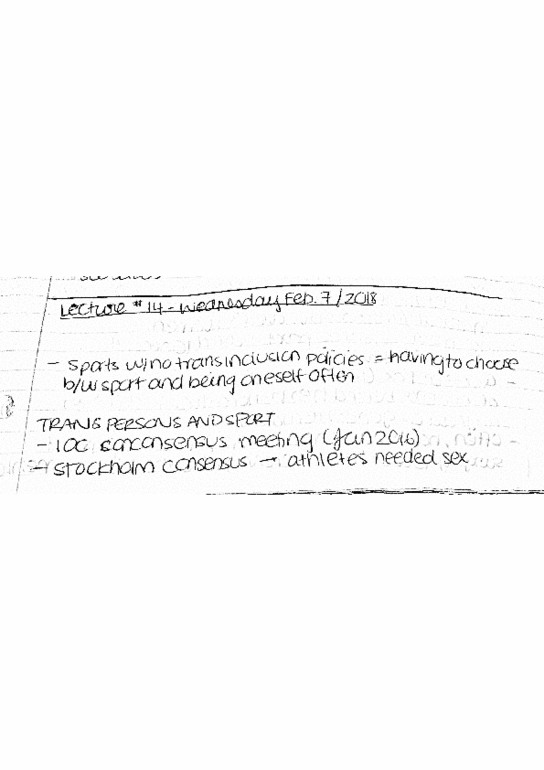 Lecture #14 - Wednesday Feb. 7/2018
- Sports w/no trans inclusion policies = having to choose
b/w sport and being oneself often
TRANS PERSONS AND SPORT
- IOC consensus meeting (Jan 2016)
→ Stockholm consensus → athletes needed sex